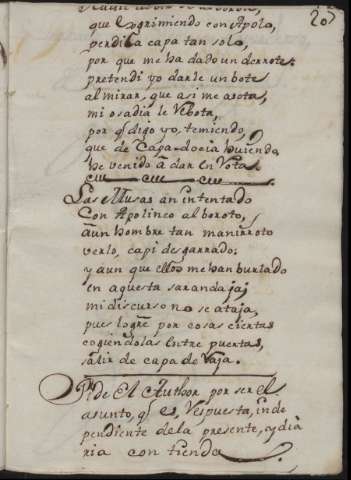 20
que esgrimiendo con Apolo,
perdi la capa tan solo,
por que me ha dado un derrote:
pretendi yo darle un bote
al mirar, que asi me azota,
mi osadia le
por q̃ digo yo, temiendo,
que de Capa huiendo,
he venido â dar en Vota.
Las Musas an intentado
Con Apolineo alboroto,
â un hombre tan manirroto
verlo, capi desgarrado:
y aun que ellos me han burlado
en aquesta sarandaja;
mi discurso no se ataja,
pues logre por cosas ciertas
cogiendolas entre puertas,
salir de capa de Vaja.
Pide El Author por ser el
asunto, q̃ es, Respuesta, inde
pendiente de la presente,
ria contienda